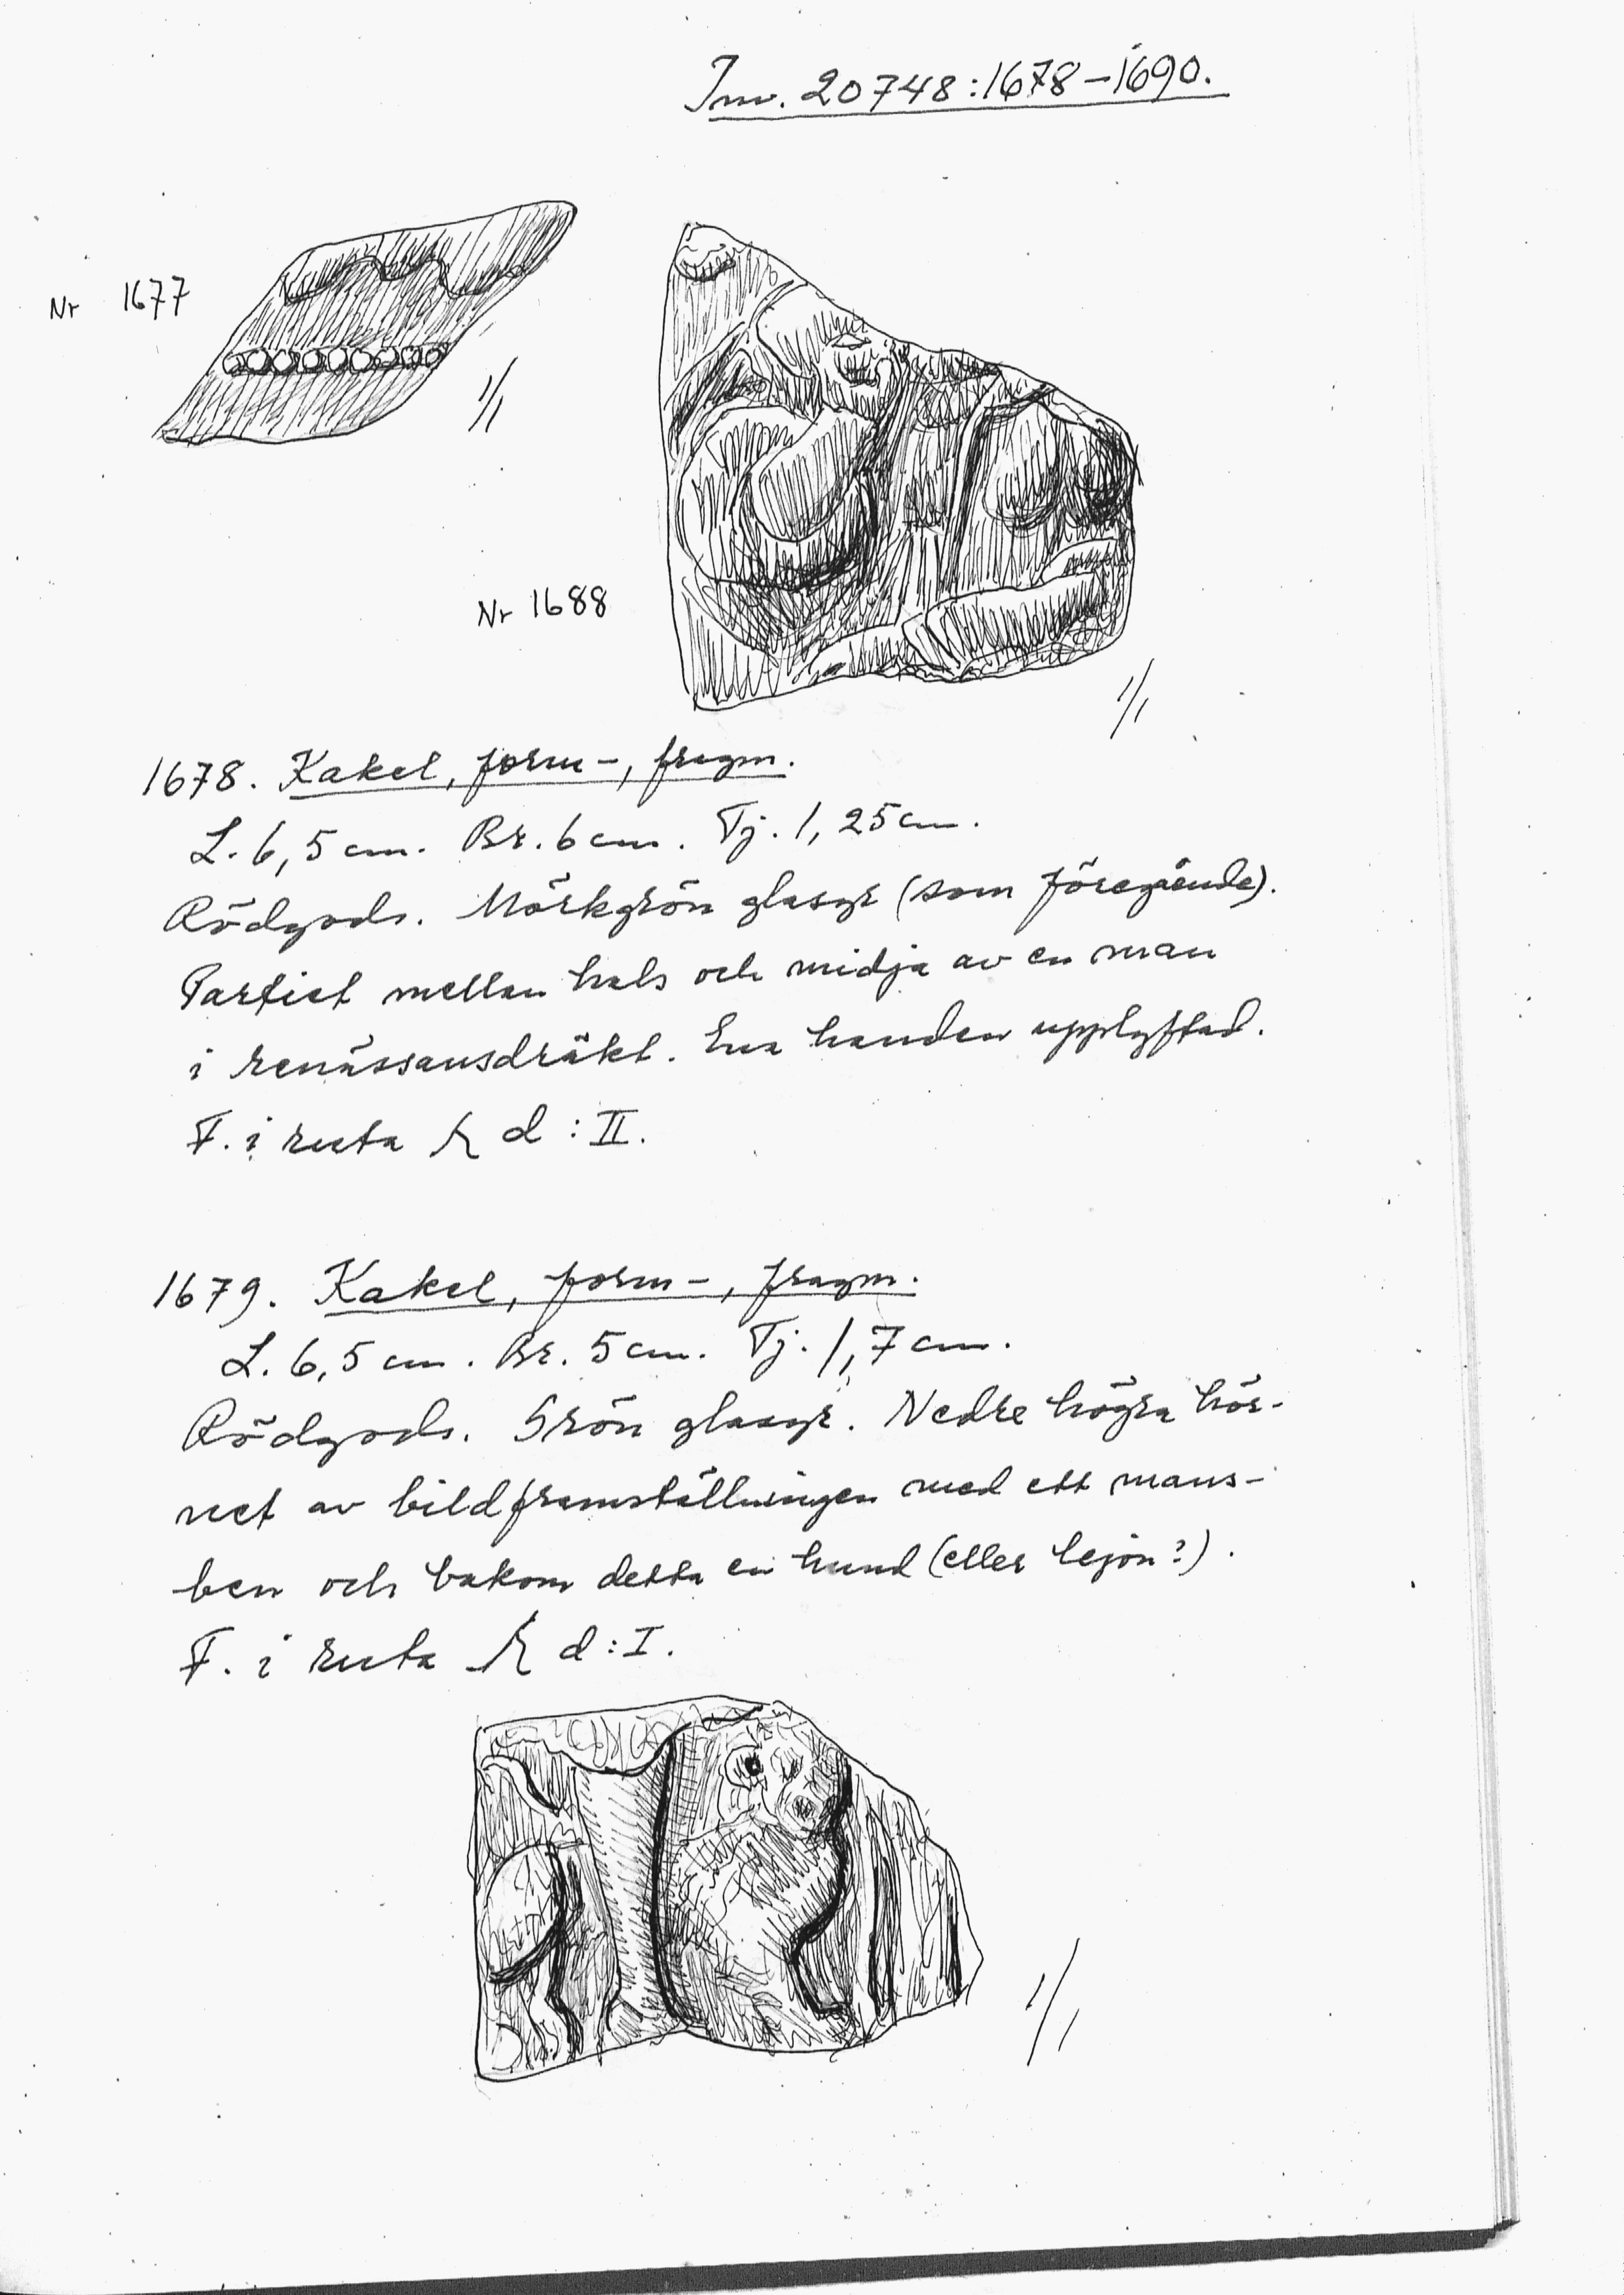 Inv. 20748:1678-1690.
Nr 1677
1/1
Nr 1688
1/1
1678. Kakel, form-, fragm.
L. 6,5 cm. Br. 6 cm. Tj. 1,25 cm.
Rödgods. Mörkgrön glasyr (som föregående).
Partiet mellan hals och midja av en man
i renässansdräkt. Ena handen upplyftad.
F. i ruta R d : II.
1679. Kakel, form-, fragm.
L. 6,5 cm. Br. 5 cm. Tj. 1,7 cm.
Rödgods. Grön glasyr. Nedre högra hör-
net av bildframställningen med ett mans-
ben och bakom detta en hund (eller lejon?).
F. i ruta R d : I.
1/1